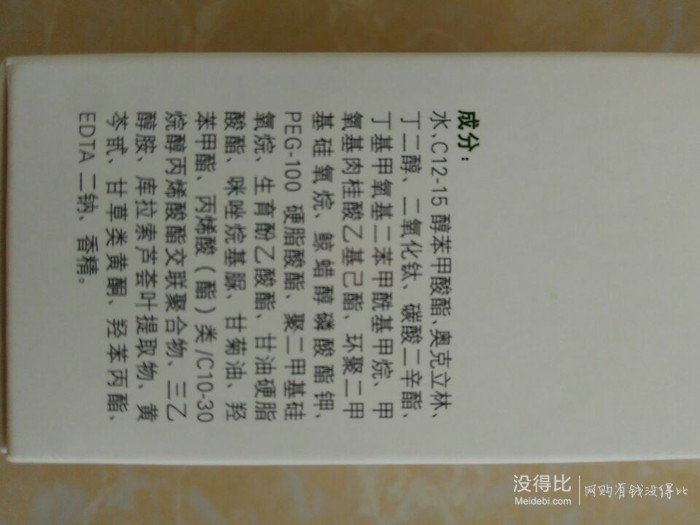 成分：
水、C12-15 醇苯甲酸酯、奥克立林、
丁二醇、二氧化钛、碳酸二辛酯、
丁基甲氧基二苯甲酰基甲烷、甲
氧基肉桂酸乙基己酯、环聚二甲
基硅氧烷、鲸蜡醇磷酸酯钾、
PEG-100 硬脂酸酯、聚二甲基硅
氧烷、生育酚乙酸酯、甘油硬脂
酸酯、咪唑烷基脲、甘菊油、羟
苯甲酯、丙烯酸（酯）类/C10-30
烷醇丙烯酸酯交联聚合物、三乙
醇胺、库拉索芦荟叶提取物、黄
芩甙、甘草类黄酮、羟苯丙酯、
EDTA 二钠、香精。
没得比
Meidebi.com
网购有钱没得比